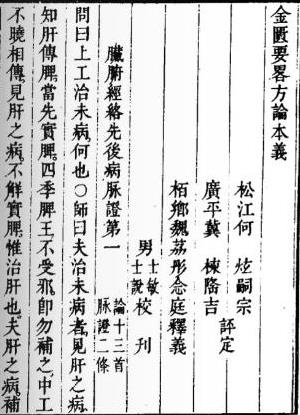 金匱要畧方論本義
松江何 炫嗣宗
廣平冀 棟隆吉 評定
柏鄉魏荔彤念庭釋義
男 士敏 士說 校刊
臟腑經絡先後病脉證第一 論十三首 脉證二條
問曰上工治未病何也○師曰夫治未病者見肝之病
知肝傳脾當先實脾四季脾王不受邪卽勿補之中工
不曉相傳見肝之病不解實脾惟治肝也夫肝之病補